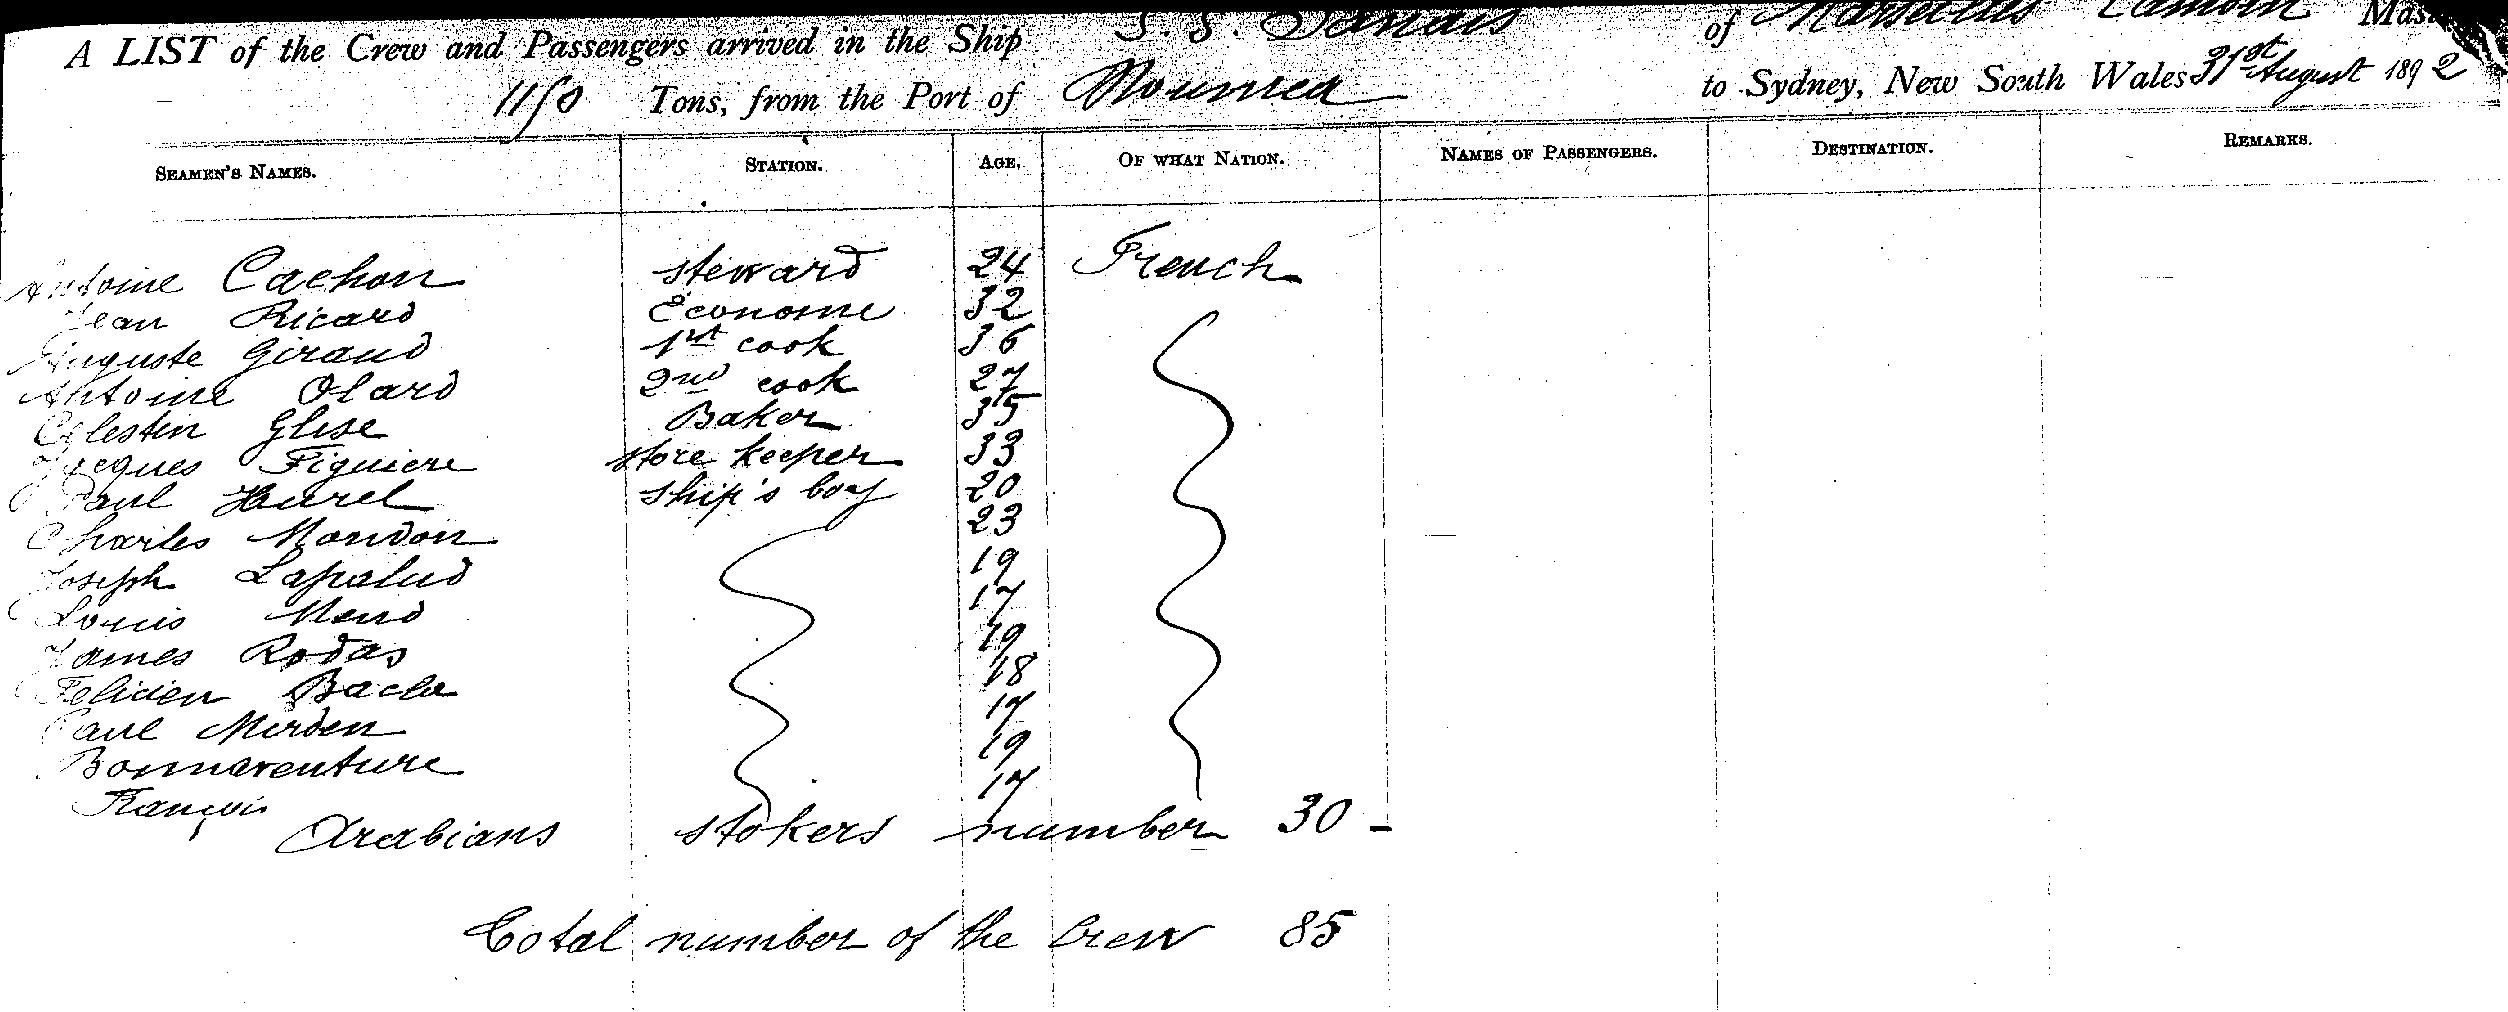 A LIST of the Crew and Passengers arrived in the Ship S. S. of Marseilles Master
1150 Tons, from the Port of Noumea to Sydney, New South Wales 31st August 1892
SEAMEN'S NAMES. STATION. AGE. OF WHAT NATION. NAMES OF PASSENGERS. DESTINATION. REMARKS.
Antoine Cachon steward 24 French
Jean Ricard Econome 32
Auguste Giraud 1st cook 36
Antoine Olard 2nd cook 27
Celestin Glise Baker 35
Jacques Figuiere store keeper 33
Paul Hurel ship's boy 20
Charles Mondon 23
Joseph Lapalud 19
Louis 17
James Rodas 19
Felicien 18
Paul Merden 17
Bonnaventure 19
François 17
Arabians stokers number 30 -
Total number of the Crew 85